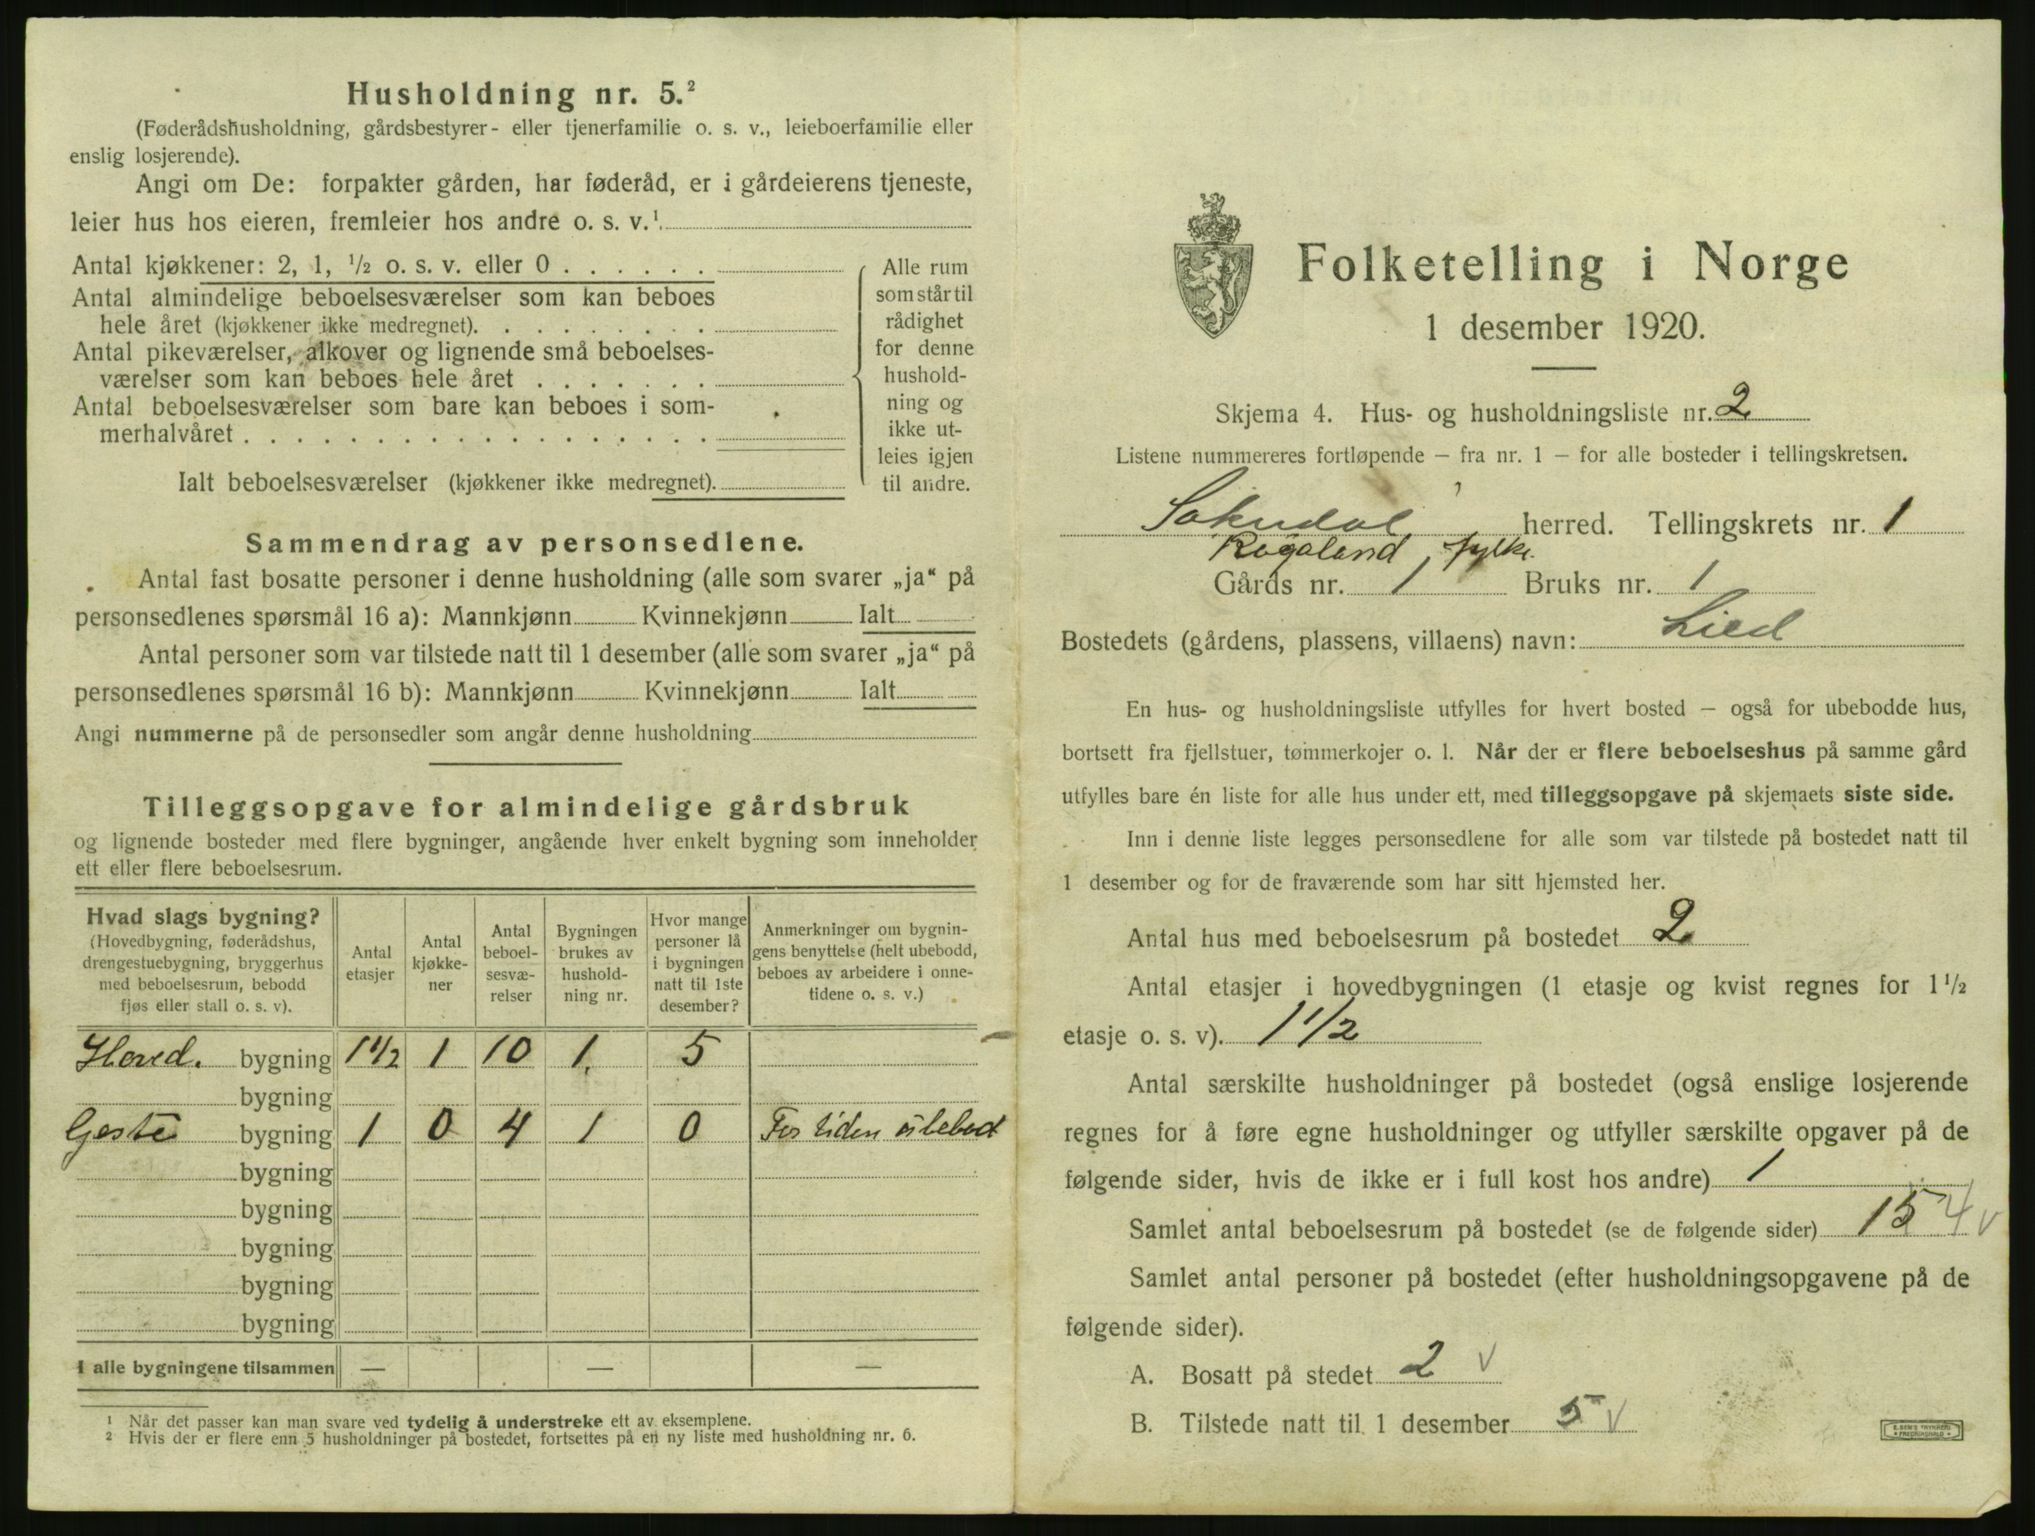 Husholdning nr. 5.²
(Føderådshusholdning, gårdsbestyrer- eller tjenerfamilie o. s. v., leieboerfamilie eller
enslig losjerende).
Angi om De: forpakter gården, har føderåd, er i gårdeierens tjeneste,
leier hus hos eieren, fremleier hos andre o. s. v.¹
Antal kjøkkener: 2, 1, ½ o. s. v. eller 0 . . . . . .
Antal almindelige beboelsesværelser som kan beboes
hele året (kjøkkener ikke medregnet). . . . . . . . .
Antal pikeværelser, alkover og lignende små beboelses-
værelser som kan beboes hele året . . . . . . .
Antal beboelsesværelser som bare kan beboes i som-
merhalvåret . . . . . . . . . . . . . . . . . .
Ialt beboelsesværelser (kjøkkener ikke medregnet).
Alle rum
som står til
rådighet
for denne
hushold-
ning og
ikke ut-
leies igjen
til andre.
Sammendrag av personsedlene.
Antal fast bosatte personer i denne husholdning (alle som svarer „ja“ på
personsedlenes spørsmål 16 a): Mannkjønn Kvinnekjønn Ialt
Antal personer som var tilstede natt til 1 desember (alle som svarer „ja“ på
personsedlenes spørsmål 16 b): Mannkjønn Kvinnekjønn Ialt
Angi nummerne på de personsedler som angår denne husholdning
Tilleggsopgave for almindelige gårdsbruk
og lignende bosteder med flere bygninger, angående hver enkelt bygning som inneholder
ett eller flere beboelsesrum.
Hvad slags bygning?
(Hovedbygning, føderådshus,
drengestuebygning, bryggerhus
med beboelsesrum, bebodd
fjøs eller stall o. s. v).
Antal
etasjer
Antal
kjøkke-
ner
Antal
beboel-
sesvæ-
relser
Bygningen
brukes av
hushold-
ning nr.
Hvor mange
personer lå
i bygningen
natt til 1ste
desember?
Anmerkninger om bygnin-
gens benyttelse (helt ubebodd,
beboes av arbeidere i onne-
tidene o. s. v.)
Hoved. bygning 1½ 1 10 1. 5
bygning
Geste bygning 1 0 4 1 0 For tiden ubebod
bygning
bygning
bygning
bygning
bygning
I alle bygningene tilsammen — — —
¹ Når det passer kan man svare ved tydelig å understreke ett av eksemplene.
² Hvis der er flere enn 5 husholdninger på bostedet, fortsettes på en ny liste med husholdning nr. 6.
Folketelling i Norge
1 desember 1920.
Skjema 4. Hus- og husholdningsliste nr. 2
Listene nummereres fortløpende — fra nr. 1 — for alle bosteder i tellingskretsen.
Sokndal herred. Tellingskrets nr. 1
Rogaland fylke.
Gårds nr. 1 Bruks nr. 1
Bostedets (gårdens, plassens, villaens) navn: Lied
En hus- og husholdningsliste utfylles for hvert bosted — også for ubebodde hus,
bortsett fra fjellstuer, tømmerkojer o. l. Når der er flere beboelseshus på samme gård
utfylles bare én liste for alle hus under ett, med tilleggsopgave på skjemaets siste side.
Inn i denne liste legges personsedlene for alle som var tilstede på bostedet natt til
1 desember og for de fraværende som har sitt hjemsted her.
Antal hus med beboelsesrum på bostedet 2
Antal etasjer i hovedbygningen (1 etasje og kvist regnes for 1½
etasje o. s. v). 1 1/2
Antal særskilte husholdninger på bostedet (også enslige losjerende
regnes for å føre egne husholdninger og utfyller særskilte opgaver på de
følgende sider, hvis de ikke er i full kost hos andre) 1
Samlet antal beboelsesrum på bostedet (se de følgende sider) 15 4 v
Samlet antal personer på bostedet (efter husholdningsopgavene på de
følgende sider).
A. Bosatt på stedet 2 v
B. Tilstede natt til 1 desember 5 v